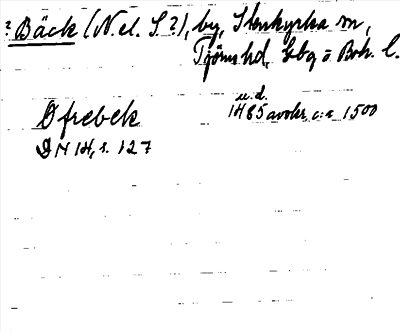 ? Bäck (N el. S?), by, Stenkyrka sn,
Tjörns hd, Gbg o Boh. l.
u. d.
Øfrebek 1485 avskr. c:a 1500
DN 14, s. 127